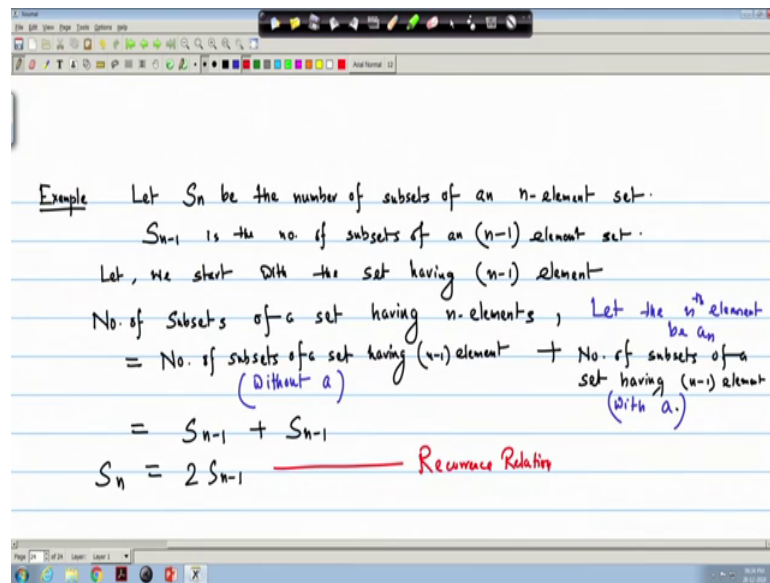 Journal
File Edit View Page Tools Options Help
Arial Normal 12
Example Let Sn be the number of subsets of an n-element set.
Sn-1 is the no. of subsets of an (n-1) element set.
Let, we start with the set having (n-1) element
No. of Subsets of a set having n-elements, Let the nth element be an
= No. of subsets of a set having (n-1) element + No. of subsets of a set having (n-1) element
(Without a) (With a.)
= Sn-1 + Sn-1
Sn = 2 Sn-1 Recurrence Relation
Page 24 of 24 Layer: Layer 1